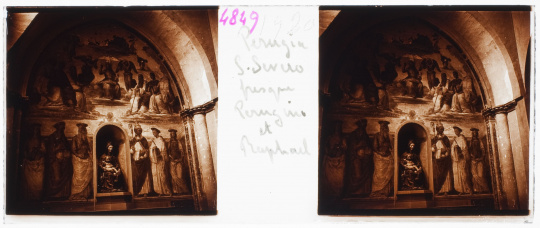 4849
Perugia
S. Severo
fresque
Perugino
et
Raphael